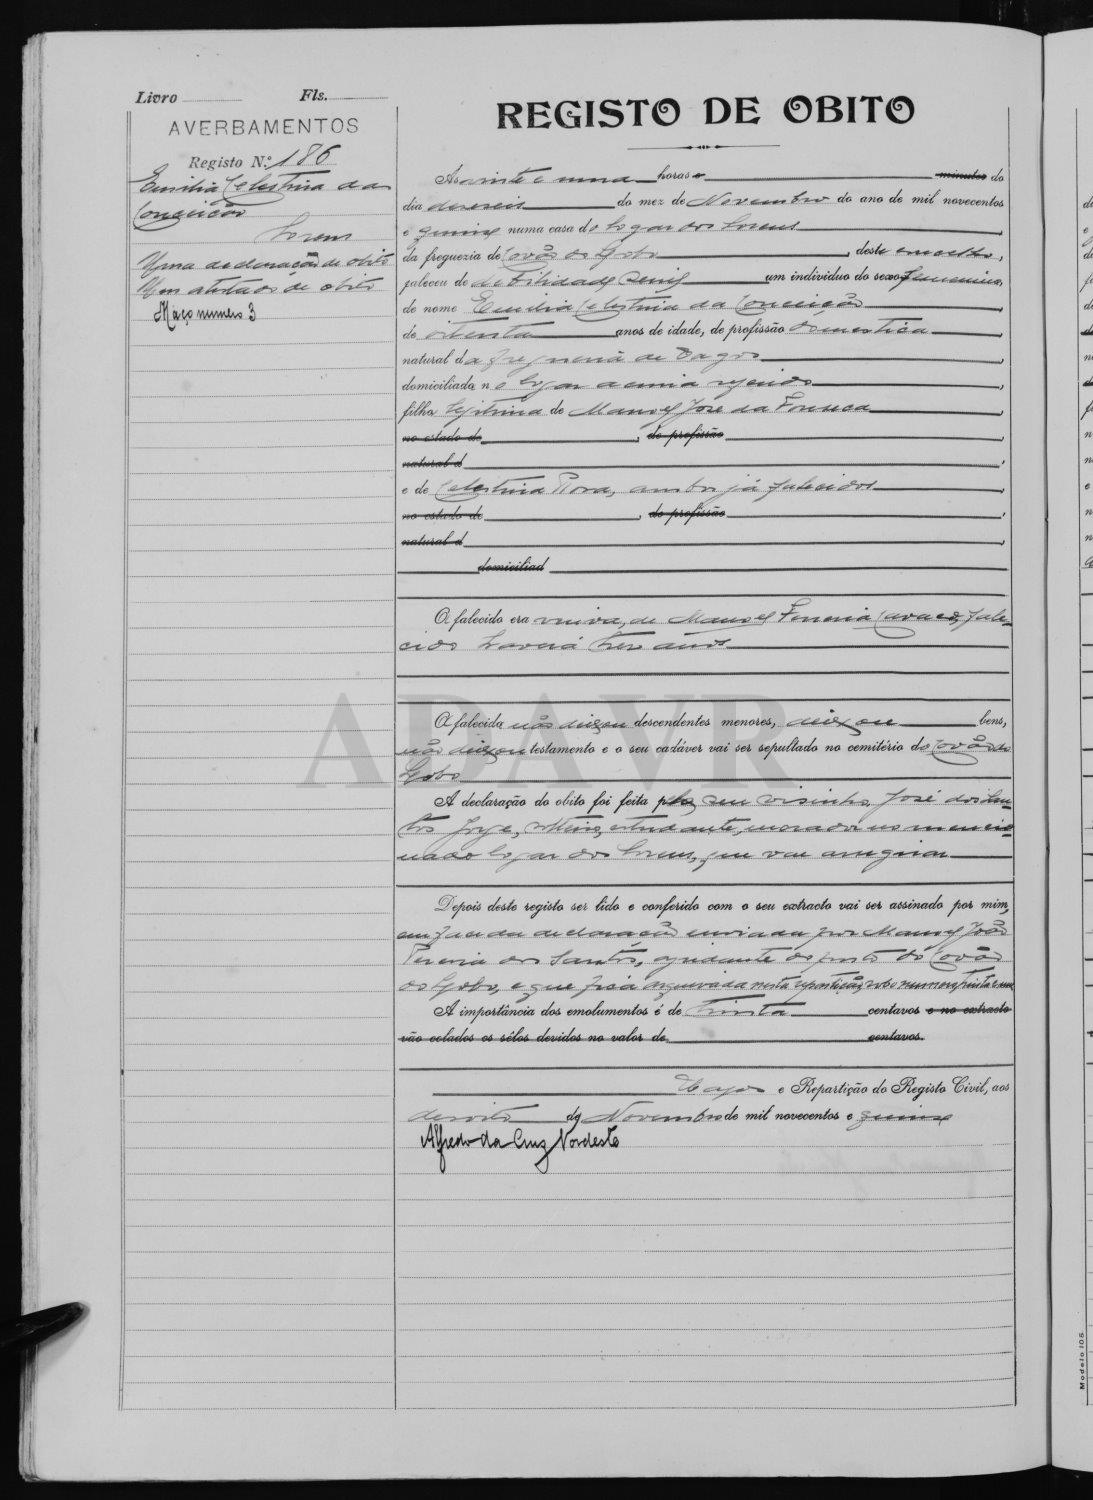 Livro Fls.
AVERBAMENTOS
Registo N.º 186
Emilia Celestina da
Conceição
Lorens
Uma declaração de obito
Um atestado de obito
Maço numero 3
REGISTO DE OBITO
As vinte e uma horas e minutos do
dia dezeseis do mez de Novembro do ano de mil novecentos
e quinze numa casa do logar dos Lorens
da freguezia de Covão do Lobo, deste concelho,
faleceu de debilidade senil um individuo do sexo femenino
de nome Emilia Celestina da Conceição
de oitenta anos de idade, de profissão domestica
natural da freguesia de Vagos
domiciliada no logar acima referido
filha legitima de Manoel José da Fonseca
no estado de , de profissão
natural d
e de Celestina Rosa, ambos já falecidos
no estado de , de profissão
natural d
domiciliad
O falecido era viuva, de Manoel Ferreia Cavaco, fale-
cido haverá tres anos
A falecida não deixou descendentes menores, deixou bens,
não deixou testamento e o seu cadáver vai ser sepultado no cemitério do Covão do
Lobo
A declaração do obito foi feita pelo seu visinho José dos San-
tos Jorge, solteiro, estudante, morador no mencio-
nado logar dos Lorens, que vae arquivar
Depois deste registo ser lido e conferido com o seu extracto vai ser assinado por mim,
em face da declaração enviada por Manoel João
Ferreia dos Santos, ajudante do posto do Covão
do Lobo, e que fica arquivada nesta repartição, sob o numero trinta e um
A importância dos emolumentos é de trinta centavos e no extracto
vão colados os sêlos devidos no valor de centavos.
Vagos e Repartição do Registo Civil, aos
dezoito de Novembro de mil novecentos e quinze
Alfredo da Cruz Nordeste
ADAVR
Modelo 105